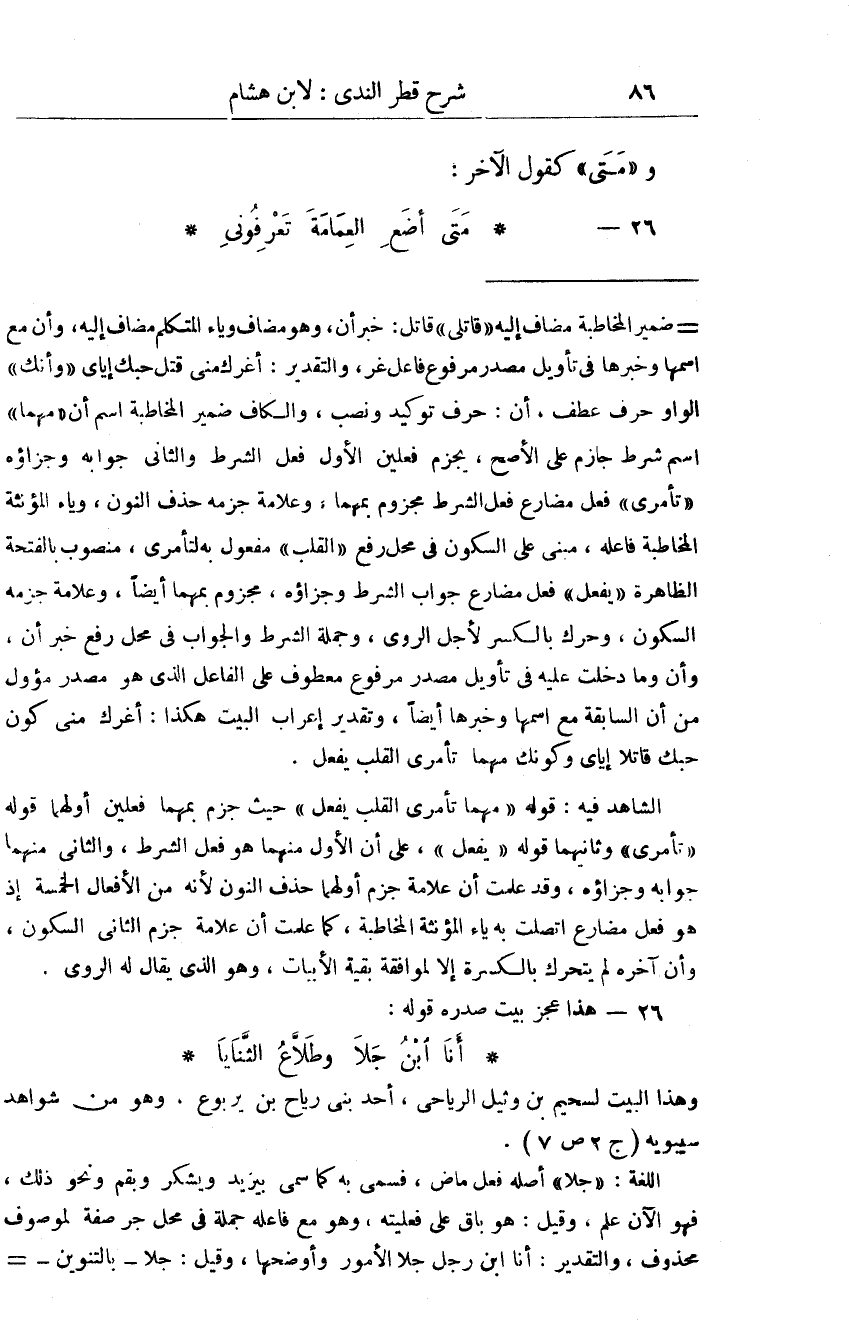 ٨٦ شرح قطر الندى : لابن هشام
و «مَتَى» كقول الآخر :
٢٦ — * مَتَى أضَعِ العِمَامَةَ تَعْرِفُونِى *
= ضمير المخاطبة مضاف إليه «قاتلى» قاتل : خبر أن ، وهو مضاف وياء المتكلم مضاف إليه، وأن مع
اسمها وخبرها فى تأويل مصدر مرفوع فاعل غر، والتقدير : أغرك منى قتل حبك إياى «وأنك»
الواو حرف عطف ، أن : حرف توكيد ونصب ، والكاف ضمير المخاطبة اسم أن «مهما»
اسم شرط جازم على الأصح ، يجزم فعلين الأول فعل الشرط والثانى جوابه وجزاؤه
«تأمرى» فعل مضارع فعل الشرط مجزوم بمهما ، وعلامة جزمه حذف النون ، وياء المؤنثة
المخاطبة فاعله ، مبنى على السكون فى محل رفع «القلب» مفعول به لتأمرى ، منصوب بالفتحة
الظاهرة «يفعل» فعل مضارع جواب الشرط وجزاؤه ، مجزوم بمهما أيضاً ، وعلامة جزمه
السكون ، وحرك بالكسر لأجل الروى ، وجملة الشرط والجواب فى محل رفع خبر أن ،
وأن وما دخلت عليه فى تأويل مصدر مرفوع معطوف على الفاعل الذى هو مصدر مؤول
من أن السابقة مع اسمها وخبرها أيضاً ، وتقدير إعراب البيت هكذا : أغرك منى كون
حبك قاتلا إياى وكونك مهما تأمرى القلب يفعل .
الشاهد فيه : قوله « مهما تأمرى القلب يفعل » حيث جزم بمهما فعلين أولهما قوله
«تأمرى» وثانيهما قوله « يفعل » ، على أن الأول منهما هو فعل الشرط ، والثانى منهما
جوابه وجزاؤه ، وقد علمت أن علامة جزم أولهما حذف النون لأنه من الأفعال الخمسة إذ
هو فعل مضارع اتصلت به ياء المؤنثة المخاطبة ، كما علمت أن علامة جزم الثانى السكون ،
وأن آخره لم يتحرك بالكسرة إلا لموافقة بقية الأبيات ، وهو الذى يقال له الروى .
٢٦ — هذا عجز بيت صدره قوله :
* أَنَا ٱبْنُ جَلاَ وطَلاَّعُ الثَّنَايَا *
وهذا البيت لسحيم بن وثيل الرياحى ، أحد بنى رياح بن يربوع . وهو من شواهد
سيبويه ( ج ٢ ص ٧ ) .
اللغة : «جلا» أصله فعل ماض ، فسمى به كما سمى بيزيد ويشكر وبقم ونحو ذلك ،
فهو الآن علم ، وقيل : هو باق على فعليته ، وهو مع فاعله جملة فى محل جر صفة لموصوف
محذوف ، والتقدير : أنا ابن رجل جلا الأمور وأوضحها ، وقيل : جلا – بالتنوين – =